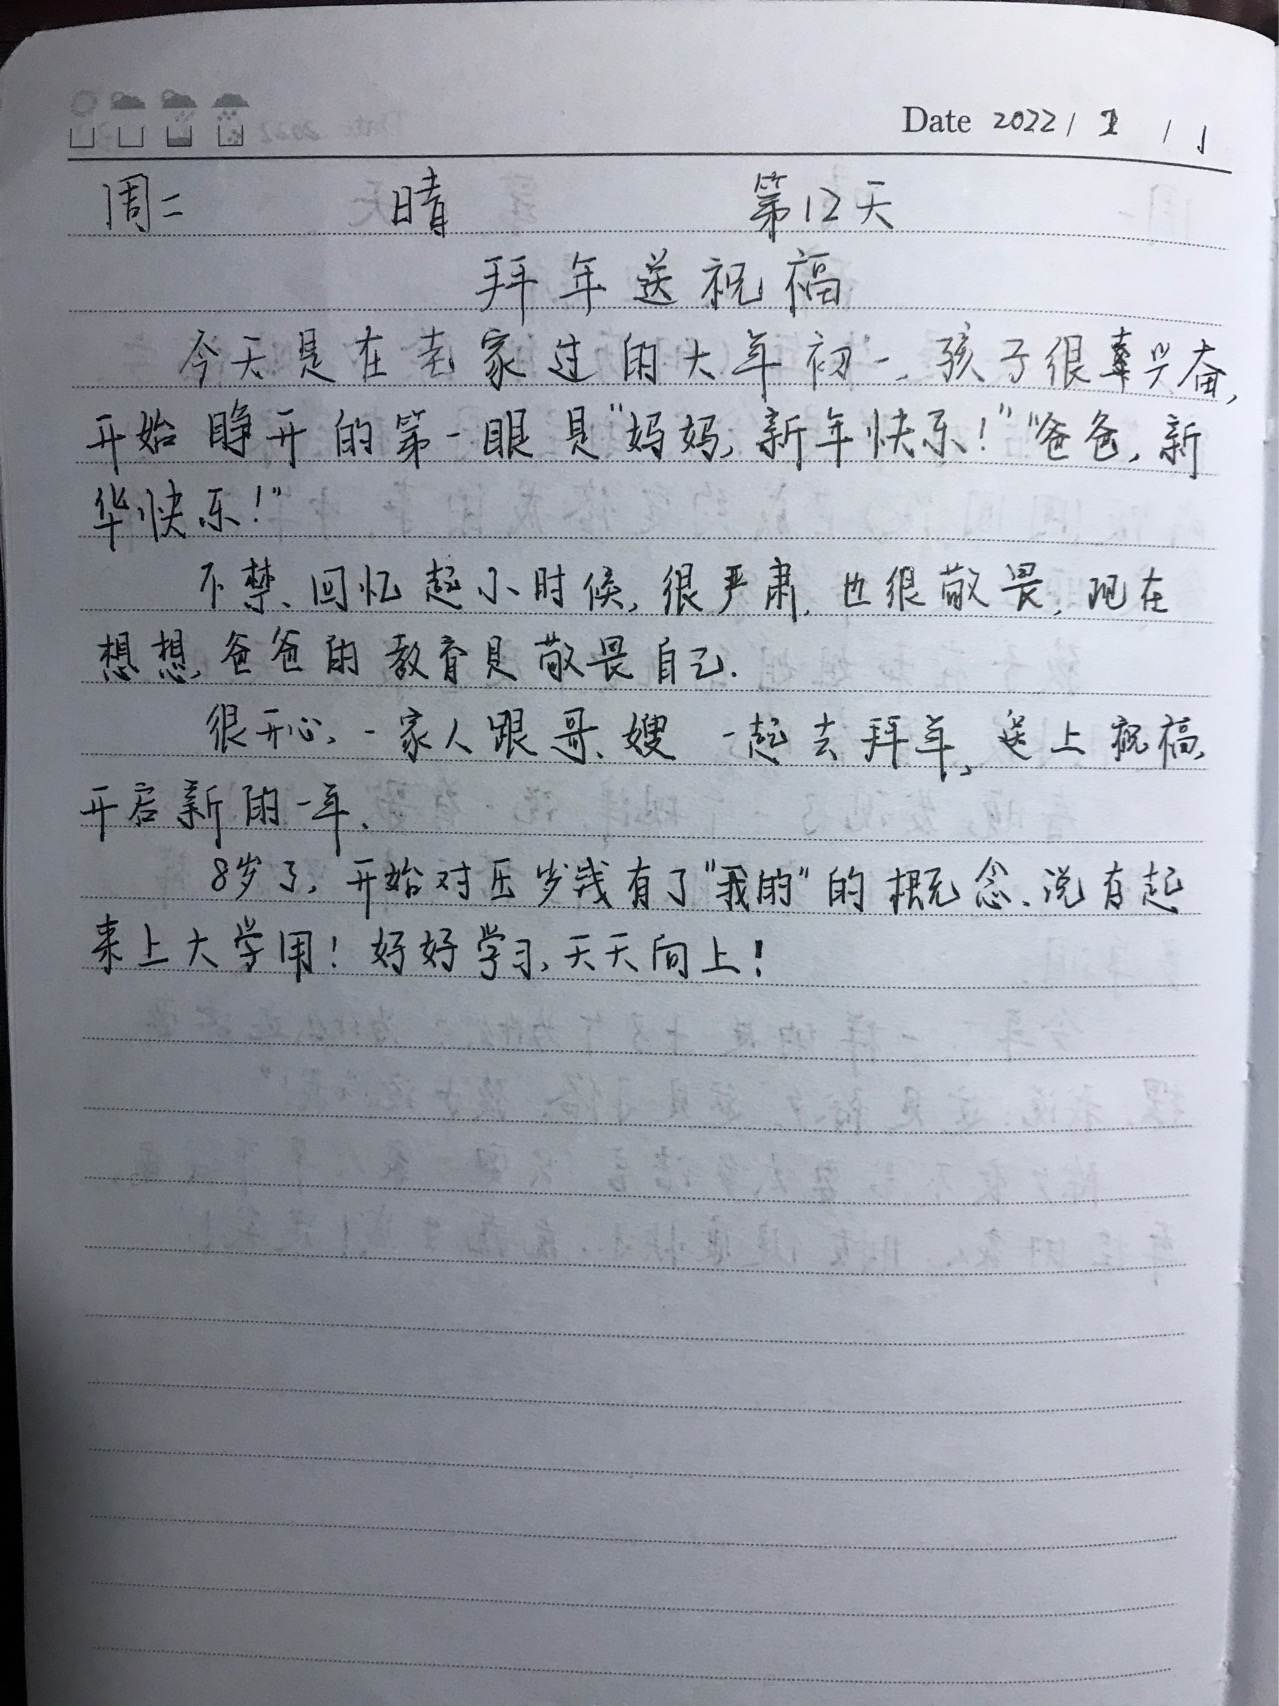 Date 2022 / 2 / 1
周二 晴 第12天
拜年送祝福
今天是在老家过的大年初一、孩子很兴奋,
开始睁开的第一眼是"妈妈,新年快乐!""爸爸,新
年快乐!"
不禁、回忆起小时候,很严肃,也很敬畏,现在
想想,爸爸的教育是敬畏自己.
很开心,一家人跟哥、嫂一起去拜年,送上祝福,
开启新的一年、
8岁了,开始对压岁钱有了"我的"的概念、说存起
来上大学用!好好学习,天天向上!